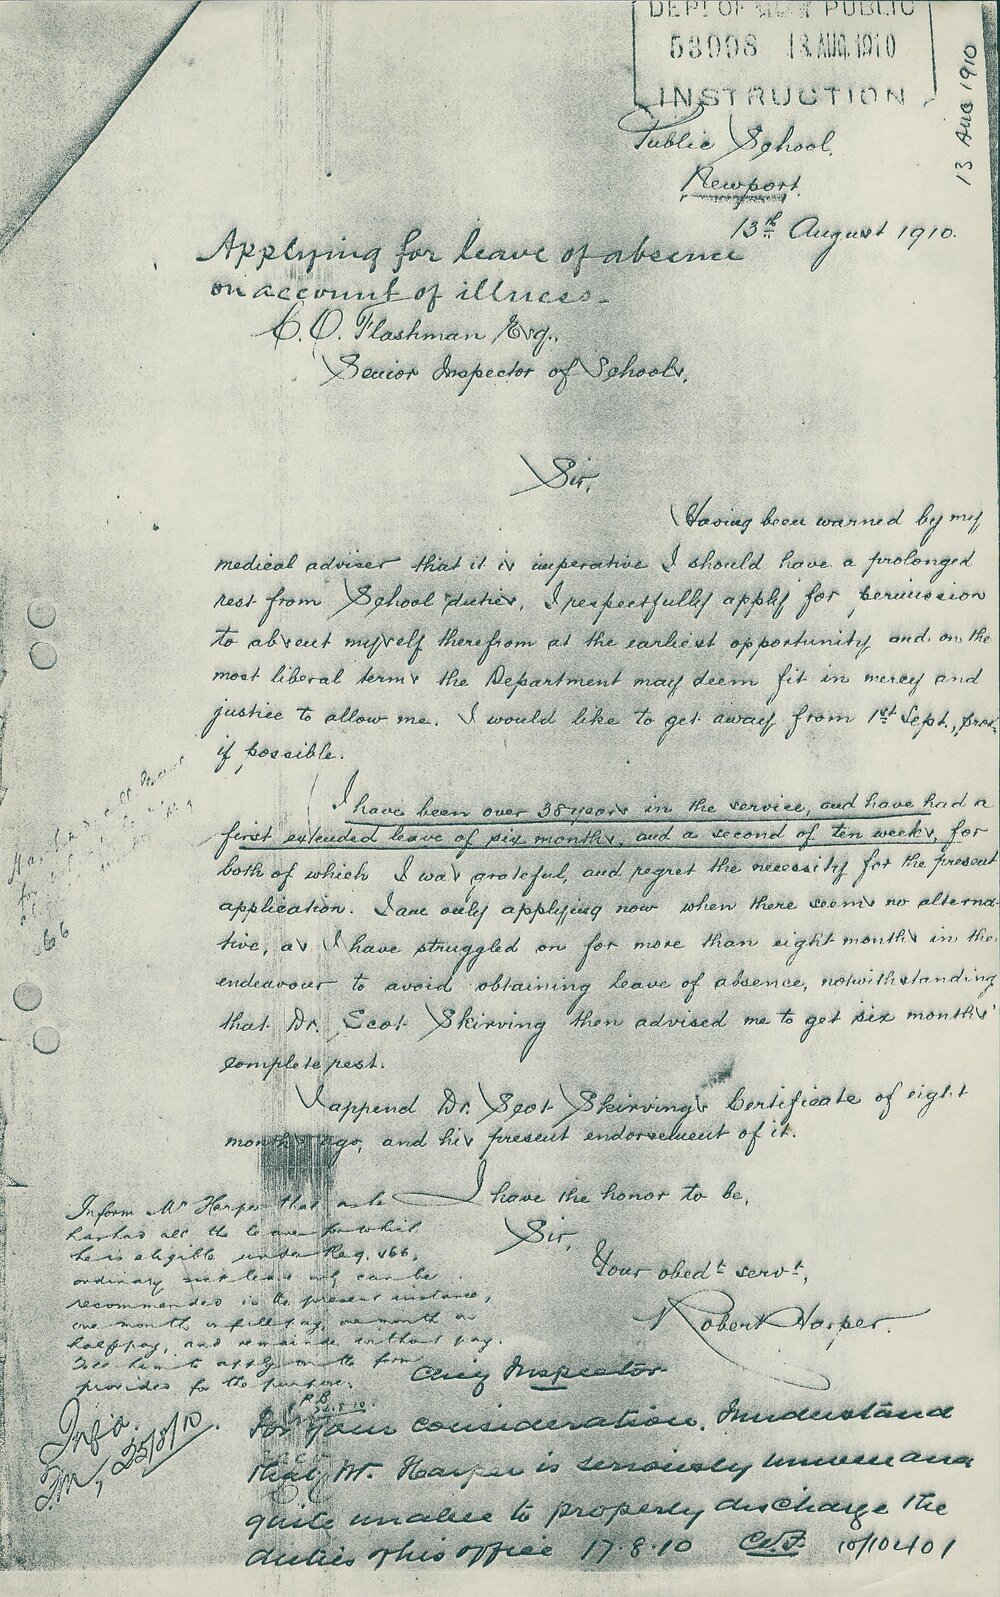 DEPT OF PUBLIC
53998 18 AUG. 1910
INSTRUCTION
13 AUG 1910
Public School,
Newport.
13th August 1910.
Applying for leave of absence
on account of illness.
C. O. Flashman Esq.,
Senior Inspector of Schools,
Sir,
Having been warned by my
medical adviser that it is imperative I should have a prolonged
rest from School duties, I respectfully apply for permission
to absent myself therefrom at the earliest opportunity and on the
most liberal terms the Department may deem fit in mercy and
justice to allow me. I would like to get away from 1st Sept., prox.
if possible.
I have been over 38 years in the service, and have had a
first extended leave of six months, and a second of ten weeks, for
both of which I was grateful, and regret the necessity for the present
application. I am only applying now when there seems no alterna-
tive, as I have struggled on for more than eight months in the
endeavour to avoid obtaining leave of absence, notwithstanding
that Dr. Scot Skirving then advised me to get six months'
complete rest.
I append Dr. Scot Skirving's Certificate of eight
months ago, and his present endorsement of it.
I have the honor to be,
Sir,
Your obedt servt,
Robert Harper.
Inform Mr Harper that as he
has had all the leave for which
he is eligible under Reg. 166,
ordinary sick leave only can be
recommended in the present instance,
one month on full pay, one month on
half pay, and remainder without pay.
Tell him to apply on the form
provided for the purpose.
30.8.10
Chief Inspector
For your consideration. I understand
that Mr. Harper is seriously unwell and
quite unable to properly discharge the
duties of his office 17.8.10